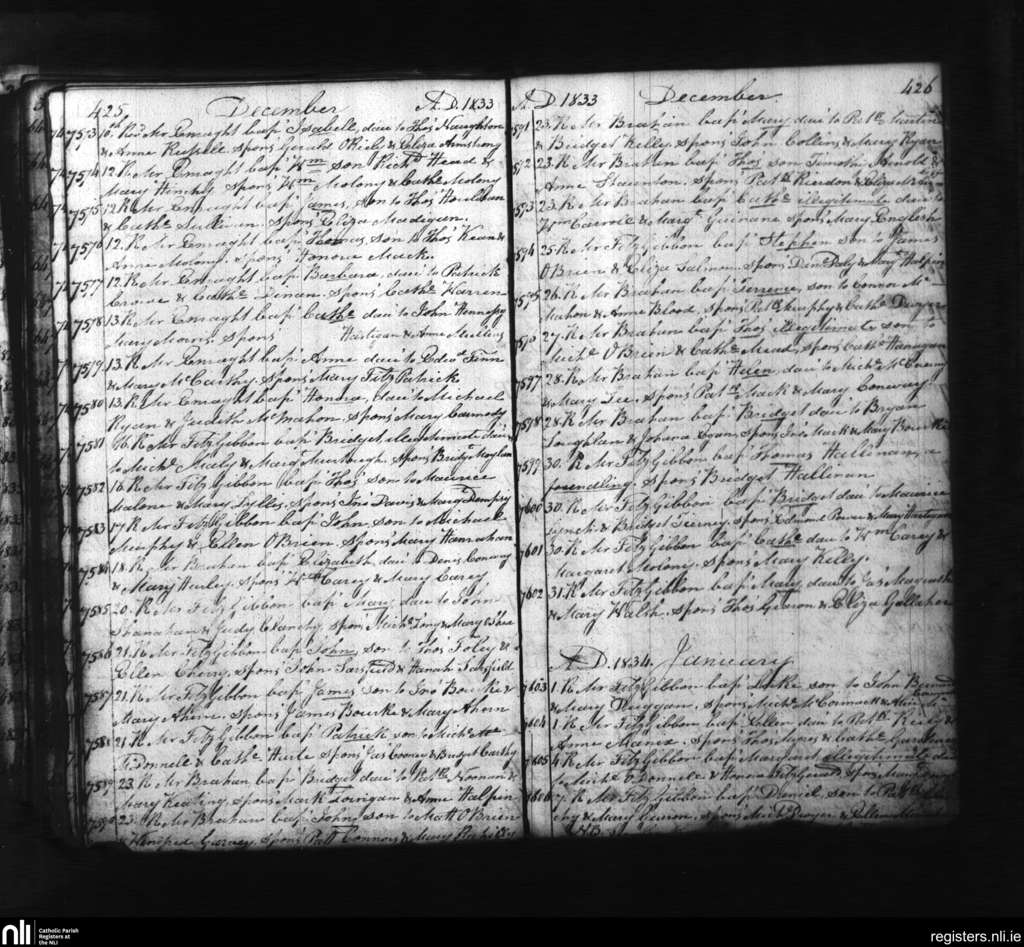 425 December A.D. 1833
7573 10th Revd Mr Enraght bapd Isabella, daur to Thos Naughton
& Anne Russell Spons Gerald O'Riely & Eliza Armstrong
7574 12 R Mr Enraght bapd Wm son Richd Head &
Mary Henchy Spons Wm Molony & Cathe Molony
7575 12 R Mr Enraght bapd James, son to Thos Houlihan
& Cathe Sullivan. Spons Eliza Madigan.
7576 12. R Mr Enraght bapd Thomas, son to Thos Kean &
Anne Molony. Spons Honora Mack.
7577 12. R Mr Enraght bapd Barbara, daur to Patrick
Crowe & Cathe Lenan. Spons Cathe Warren
7578 13. R Mr Enraght bapd Cathe daur to John Hennessy
Mary Morris. Spons Hartigan & Anne Mullins
7579 13. R Mr Enraght bapd Anne daur to Edwd Finn
& Mary McCarthy. Spons Mary FitzPatrick
7580 13. R Mr Enraght bapd Honora, daur to Michael
Ryan & Judith McMahon. Spons Mary Carmody
7581 16. R Mr FitzGibbon bapd Bridget illegitimate daur
to Michl Healy & Margt Murtagh. Spons Bridgt Moylan
7582 16. R Mr FitzGibbon bapd Thos son to Maurice
Malone & Mary Lillis, Spons Jno Davis & Margt Dempsy
7583 17. R Mr FitzGibbon bapd John, son to Michael
Murphy & Ellen O'Brien. Spons Mary Hanrahan
7584 18. R Mr Brahan bapd Elizabeth daur to Denis Conway
& Mary Hurley. Spons Wm Carey & Mary Carey
7585 20. R Mr FitzGibbon bapd Mary, daur to John
Shanahan & Judy Clanchy. Spons Michl Tony & Mary
7586 21. R Mr FitzGibbon bapd John, son to Thos Foley &
Ellen Cherry, spons John Sarsfield & Hanah Sarsfield
7587 21. R Mr FitzGibbon bapd James son to Jno Bourke &
Mary Ahern. Spons James Bourke & Mary Ahern
7588 21. R Mr FitzGibbon bapd Patrick son to Michl Mc
Donnell & Cathe Hurle Spons Jas Cooney & Bridget Carthy
7589 23. R Mr Brahan bapd Bridget daur to Patk Noonan &
Mary Keating. Spons Mark Lonigan & Anne Halpin
7590 23. R Mr Brahan bapd John, son to Matt O'Brien
& Winifred Garvey. Spons Patt Connors & Mary
A.D. 1833 December. 426
7591 23. R Mr Brahan bapd Mary daur to Patk
& Bridget Kelly. Spons John Collins & Mary Ryan
7592 23. R Mr Brahan bapd Thos son Timothy Arnold &
Anne Staunton. Spons Patk Riordon & Eliza
7593 23. R Mr Brahan bapd Cathe illegitimate daur to
Wm Currie & Margt Guinane Spons Mary English
7594 25. R Mr FitzGibbon bapd Stephen son to James
O'Brien & Eliza Salmon. Spons Danl Daly & Mary Halpin
7595 26. R Mr Brahan bapd Terrence, son to Connor Mc
Mahon & Anne Blood, Spons Patk Murphy & Cathe Dwyer
7596 27. R Mr Brahan bapd Thos illegitimate son to
Michl O'Brien & Cathe Mead, Spons Cathe Hannagan
7597 28. R Mr Brahan bapd Helen, daur to Michl
& Mary Lee. Spons Patk Mack & Mary Conway
7598 28. R Mr Brahan bapd Bridget daur to Bryan
Loughlan & Johana Egan. Spons Jno Mack & Mary
7599 30. R Mr FitzGibbon bapd Thomas Hallinan, a
foundling. Spons Bridget Hallinan
7600 30. R Mr FitzGibbon bapd Bridget daur to Maurice
Lynch & Bridget Tierney. Spons Edmund Power & Mary Hartigan
7601 30. R Mr FitzGibbon bapd Cathe daur to Wm Carey &
Margaret Molony. Spons Mary Kelly.
7602 31. R Mr FitzGibbon bapd Mary daur to Jas Magrath
& Mary Walsh. Spons Thos Gibson & Eliza Gallahor
A.D. 1834. January
7603 1. R Mr FitzGibbon bapd Luke son to John
& Mary Duggan, Spons Michl McCormack &
7604 1. R Mr FitzGibbon bapd Ellen daur to Patk Riely &
Anne Manix. Spons Thos Myres & Cathe
7605 4. R Mr FitzGibbon bapd Margaret illegitimate daur
to Michl O'Donnell & Honora FitzGerald Spons Mary
7606 7. R Mr FitzGibbon bapd Daniel son to Patk
& Mary Gearon, Spons Michl Dwyer & Ellen
N.B.
nli Catholic Parish
Registers at
the NLI
registers.nli.ie